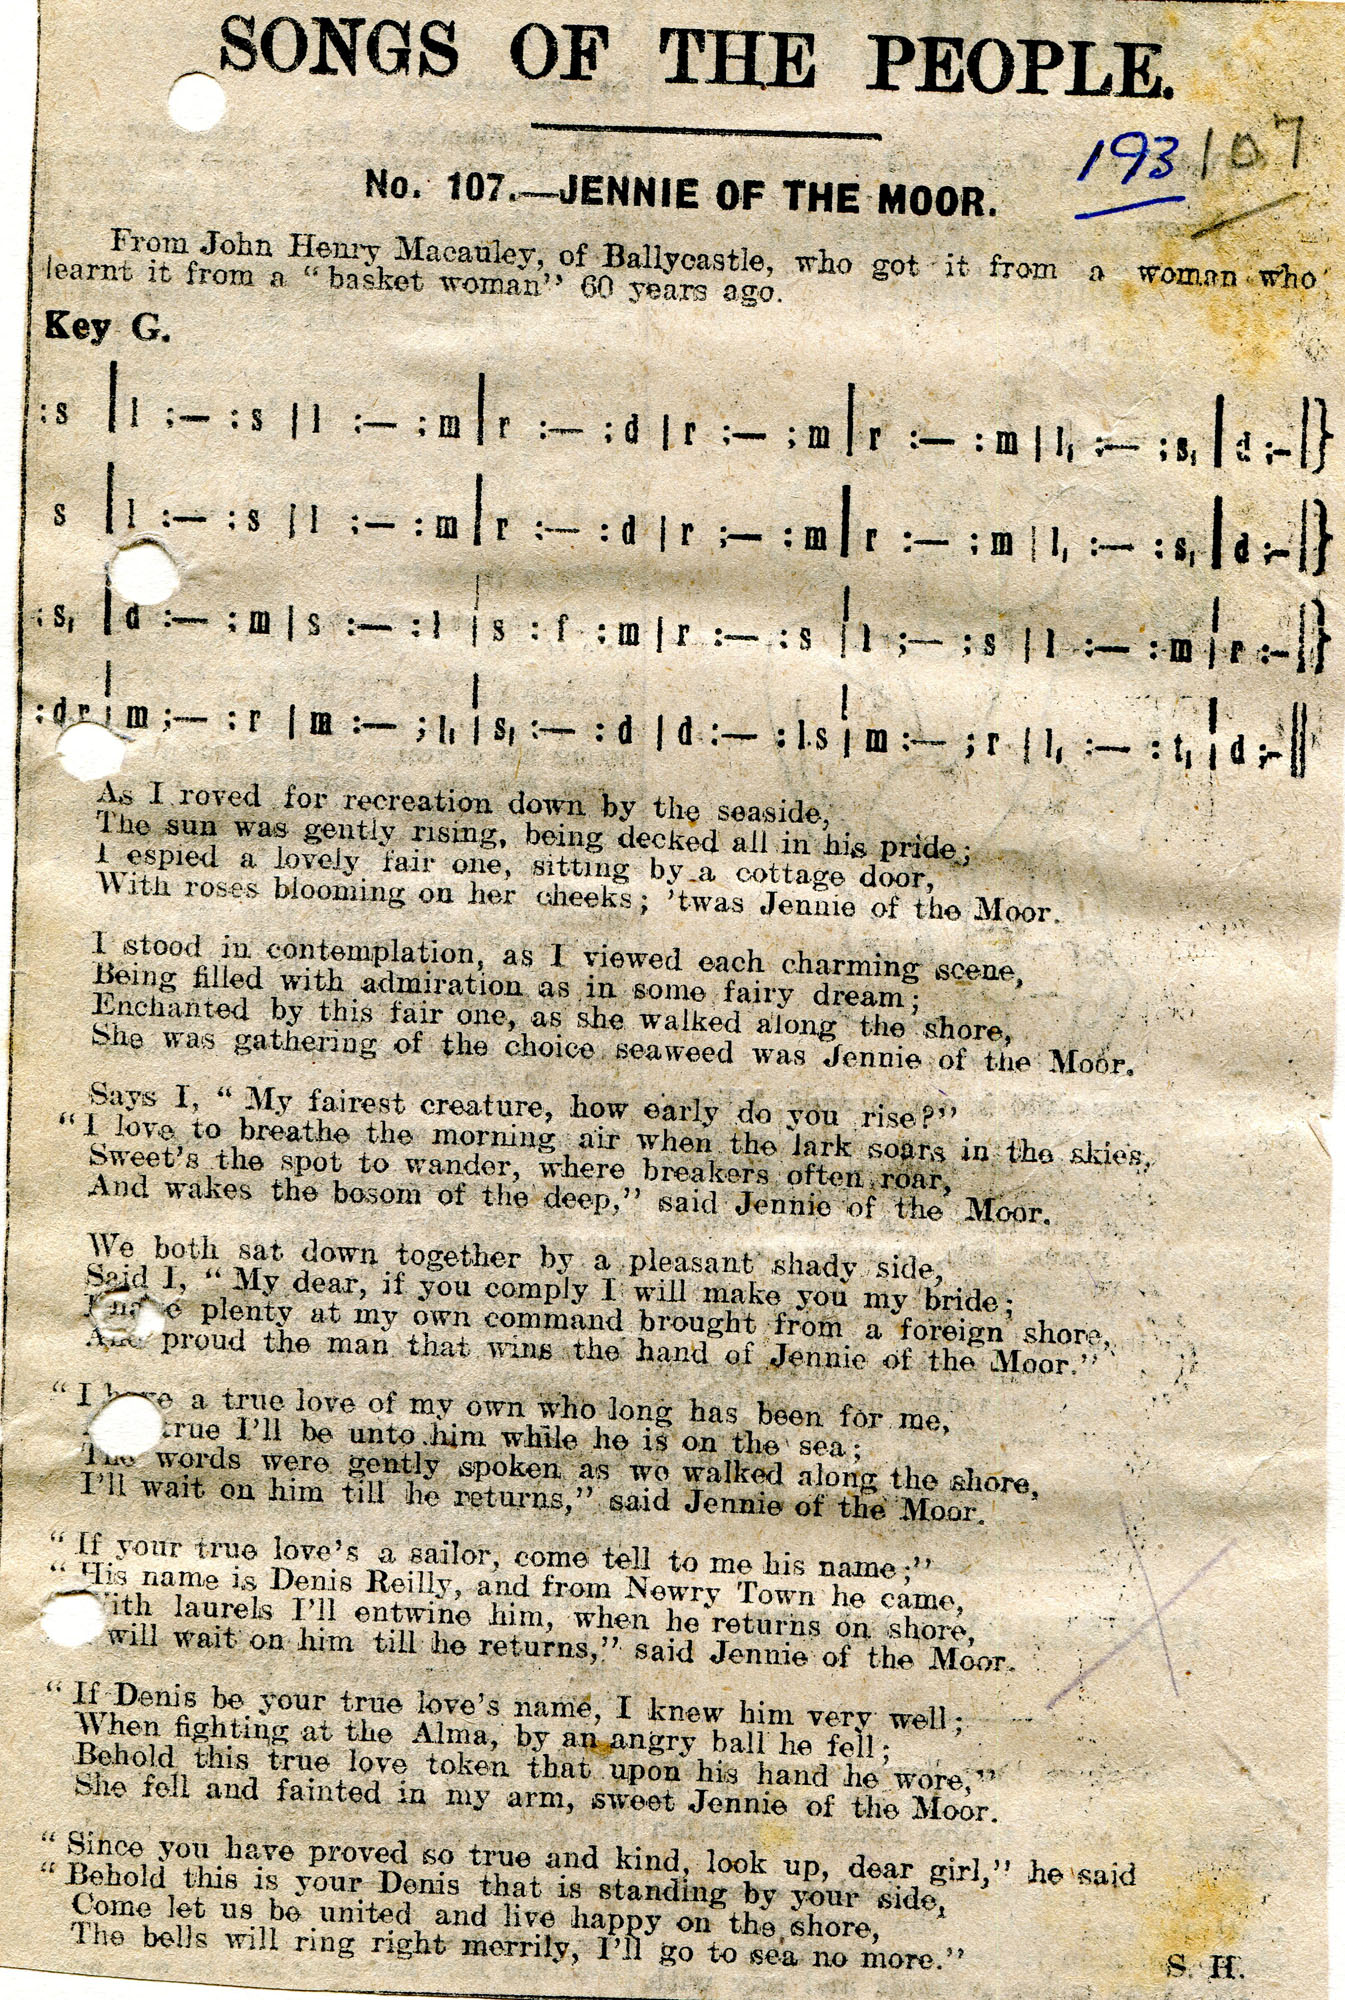 SONGS OF THE PEOPLE.
193 107
No. 107.—JENNIE OF THE MOOR.
From John Henry Macauley, of Ballycastle, who got it from a woman who
learnt it from a "basket woman" 60 years ago.
Key G.
:s | l :— :s | l :— :m | r :— :d | r :— :m | r :— :m | l, :— :s, | d :— || }
s | l :— :s | l :— :m | r :— :d | r :— :m | r :— :m | l, :— :s, | d :— || }
:s, | d :— :m | s :— :l | s :f :m | r :— :s | l :— :s | l :— :m | r :— || }
:d r | m :— :r | m :— :l, | s, :— :d | d :— :l.s | m :— :r | l, :— :t, | d :— ||
As I roved for recreation down by the seaside,
The sun was gently rising, being decked all in his pride;
I espied a lovely fair one, sitting by a cottage door,
With roses blooming on her cheeks; 'twas Jennie of the Moor.
I stood in contemplation, as I viewed each charming scene,
Being filled with admiration as in some fairy dream;
Enchanted by this fair one, as she walked along the shore,
She was gathering of the choice seaweed was Jennie of the Moor.
Says I, "My fairest creature, how early do you rise?"
"I love to breathe the morning air when the lark soars in the skies,
Sweet's the spot to wander, where breakers often roar,
And wakes the bosom of the deep," said Jennie of the Moor.
We both sat down together by a pleasant shady side,
Said I, "My dear, if you comply I will make you my bride;
I have plenty at my own command brought from a foreign shore,
And proud the man that wins the hand of Jennie of the Moor."
"I have a true love of my own who long has been for me,
true I'll be unto him while he is on the sea;
The words were gently spoken as we walked along the shore,
I'll wait on him till he returns," said Jennie of the Moor.
"If your true love's a sailor, come tell to me his name;"
"His name is Denis Reilly, and from Newry Town he came,
With laurels I'll entwine him, when he returns on shore,
will wait on him till he returns," said Jennie of the Moor.
"If Denis be your true love's name, I knew him very well;
When fighting at the Alma, by an angry ball he fell;
Behold this true love token that upon his hand he wore,"
She fell and fainted in my arm, sweet Jennie of the Moor.
"Since you have proved so true and kind, look up, dear girl," he said
"Behold this is your Denis that is standing by your side,
Come let us be united and live happy on the shore,
The bells will ring right merrily, I'll go to sea no more."
S. H.